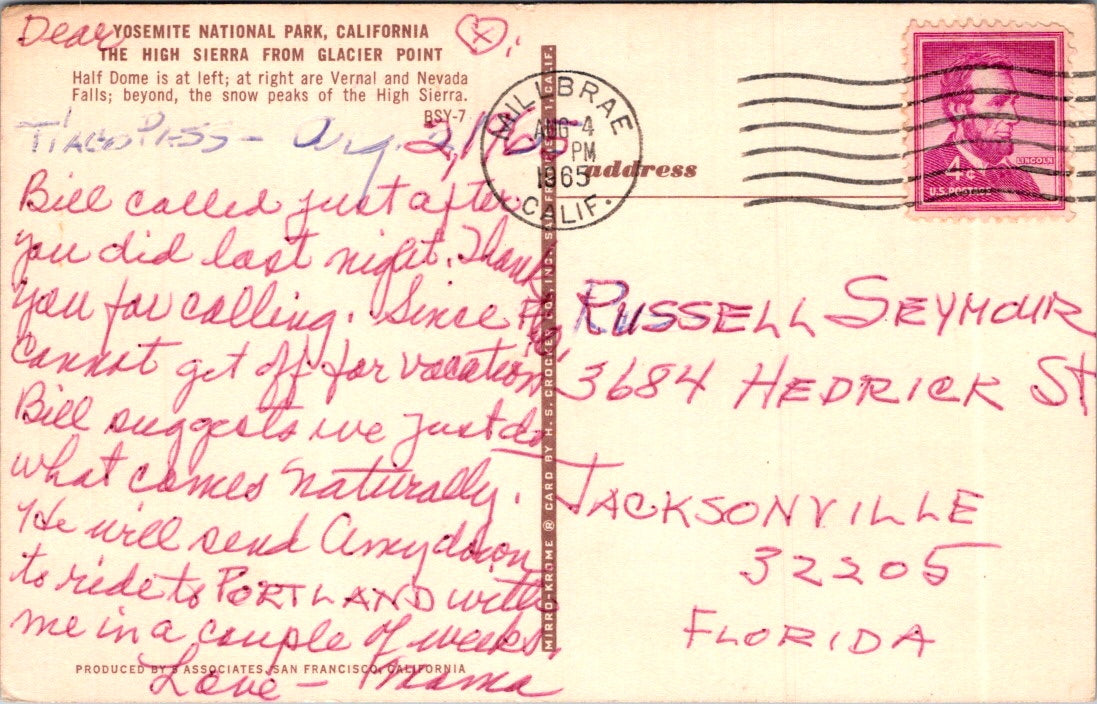 Dear
YOSEMITE NATIONAL PARK, CALIFORNIA
THE HIGH SIERRA FROM GLACIER POINT
Half Dome is at left; at right are Vernal and Nevada
Falls; beyond, the snow peaks of the High Sierra.
BSY-7
Aug. 2, 1965
Bill called just after
you did last night. Thank
you for calling. Since
cannot get off for vacation
Bill suggests we just do
what comes naturally.
He will send Amy down
to ride to PORTLAND with
me in a couple of weeks.
Love - Mama
PRODUCED BY ASSOCIATES, SAN FRANCISCO, CALIFORNIA
MIRRO-KROME ® CARD BY H. S. CROCKER CO., INC., SAN FRANCISCO 1, CALIF.
MILLBRAE
AUG 4
PM
1965
CALIF.
address
LINCOLN
4¢
U.S. POSTAGE
RUSSELL SEYMOUR
3684 HEDRICK St
JACKSONVILLE
32205
FLORIDA